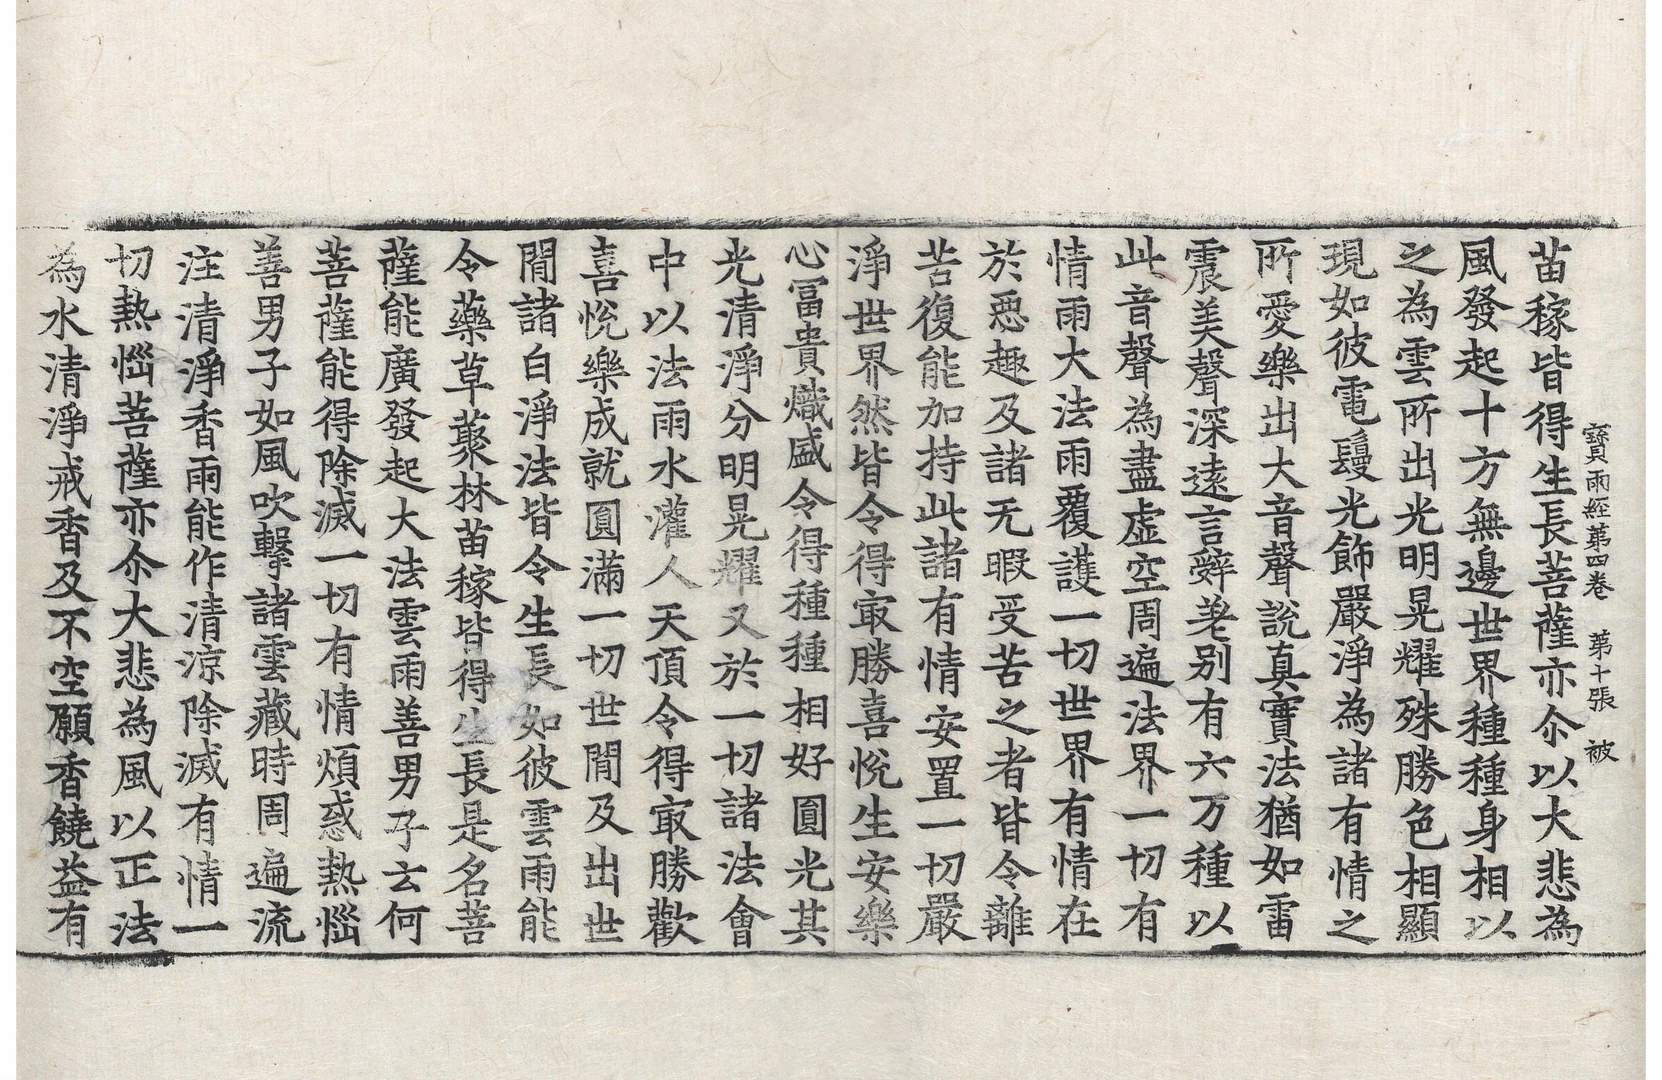 寶雨經第四卷 第十張 被
苗稼皆得生長菩薩亦尒以大悲為
風發起十方無邊世界種種身相以
之為雲所出光明晃耀殊勝色相顯
現如彼電鬘光飾嚴淨為諸有情之
所愛樂出大音聲說真實法猶如雷
震美聲深遠言辭差別有六万種以
此音聲為盡虛空周遍法界一切有
情雨大法雨覆護一切世界有情在
於惡趣及諸无暇受苦之者皆令離
苦復能加持此諸有情安置一切嚴
淨世界然皆令得㝡勝喜悅生安樂
心冨貴熾盛令得種種相好圓光其
光清淨分明晃耀又於一切諸法會
中以法雨水灌人天頂令得㝡勝歡
喜悅樂成就圓滿一切世閒及出世
閒諸白淨法皆令生長如彼雲雨能
令藥草藂林苗稼皆得生長是名菩
薩能廣發起大法雲雨善男子云何
菩薩能得除滅一切有情煩惑熱惱
善男子如風吹擊諸雲藏時周遍流
注清淨香雨能作清涼除滅有情一
切熱惱菩薩亦尒大悲為風以正法
為水清淨戒香及不空願香饒益有